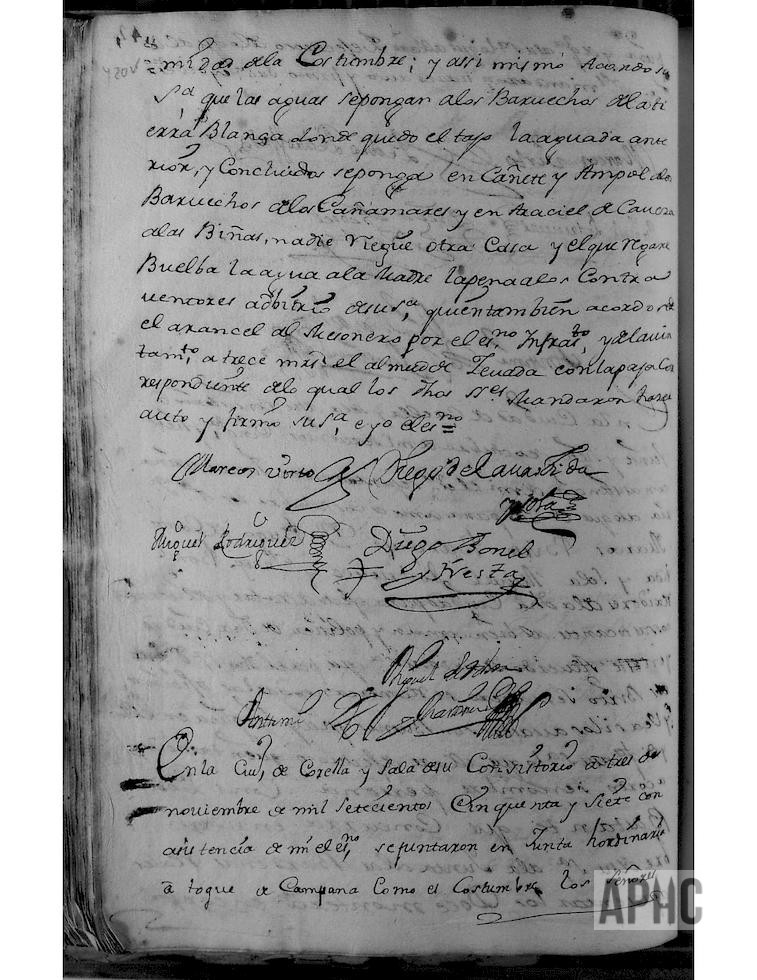 midad dela Costumbre; y assi mismo Acordo su
Sª que las aguas sepongan alos Baruechos dela ti
erra Blanga donde quedo el tajo la aguada ante
rior, y Concluidos seponga en Cañete y Ampol alos
Baruechos delos Cañamares y en Araciel de Cauera
alas Biñas, nadie riegue otra Casa y el que regare
Buelba la agua ala Madre lapena alos Contra
uentores adbitrio desu sª, quien tambien acordo
el arancel del Mesonero por el esno Infrasto, y
tamto, a trece mrs el almud de Zeuada con la paja Co
respondiente delo qual los dhos sses Mandaron hazer
auto y firmo su sª, e yo el esno =
Marcos Virto Diego de Lauastida
Miguel Rodriguez
Diego Bonel
Miguel
Antemi
En la Ciud, de Corella y Sala desu Consistorio a tres de
nouiembre de mil setecientos Cinquenta y siete con
asistencia de mi el esno, sejuntaron en Junta hordinaria
a toque de Campana Como es Costumbre los Señores
APHC